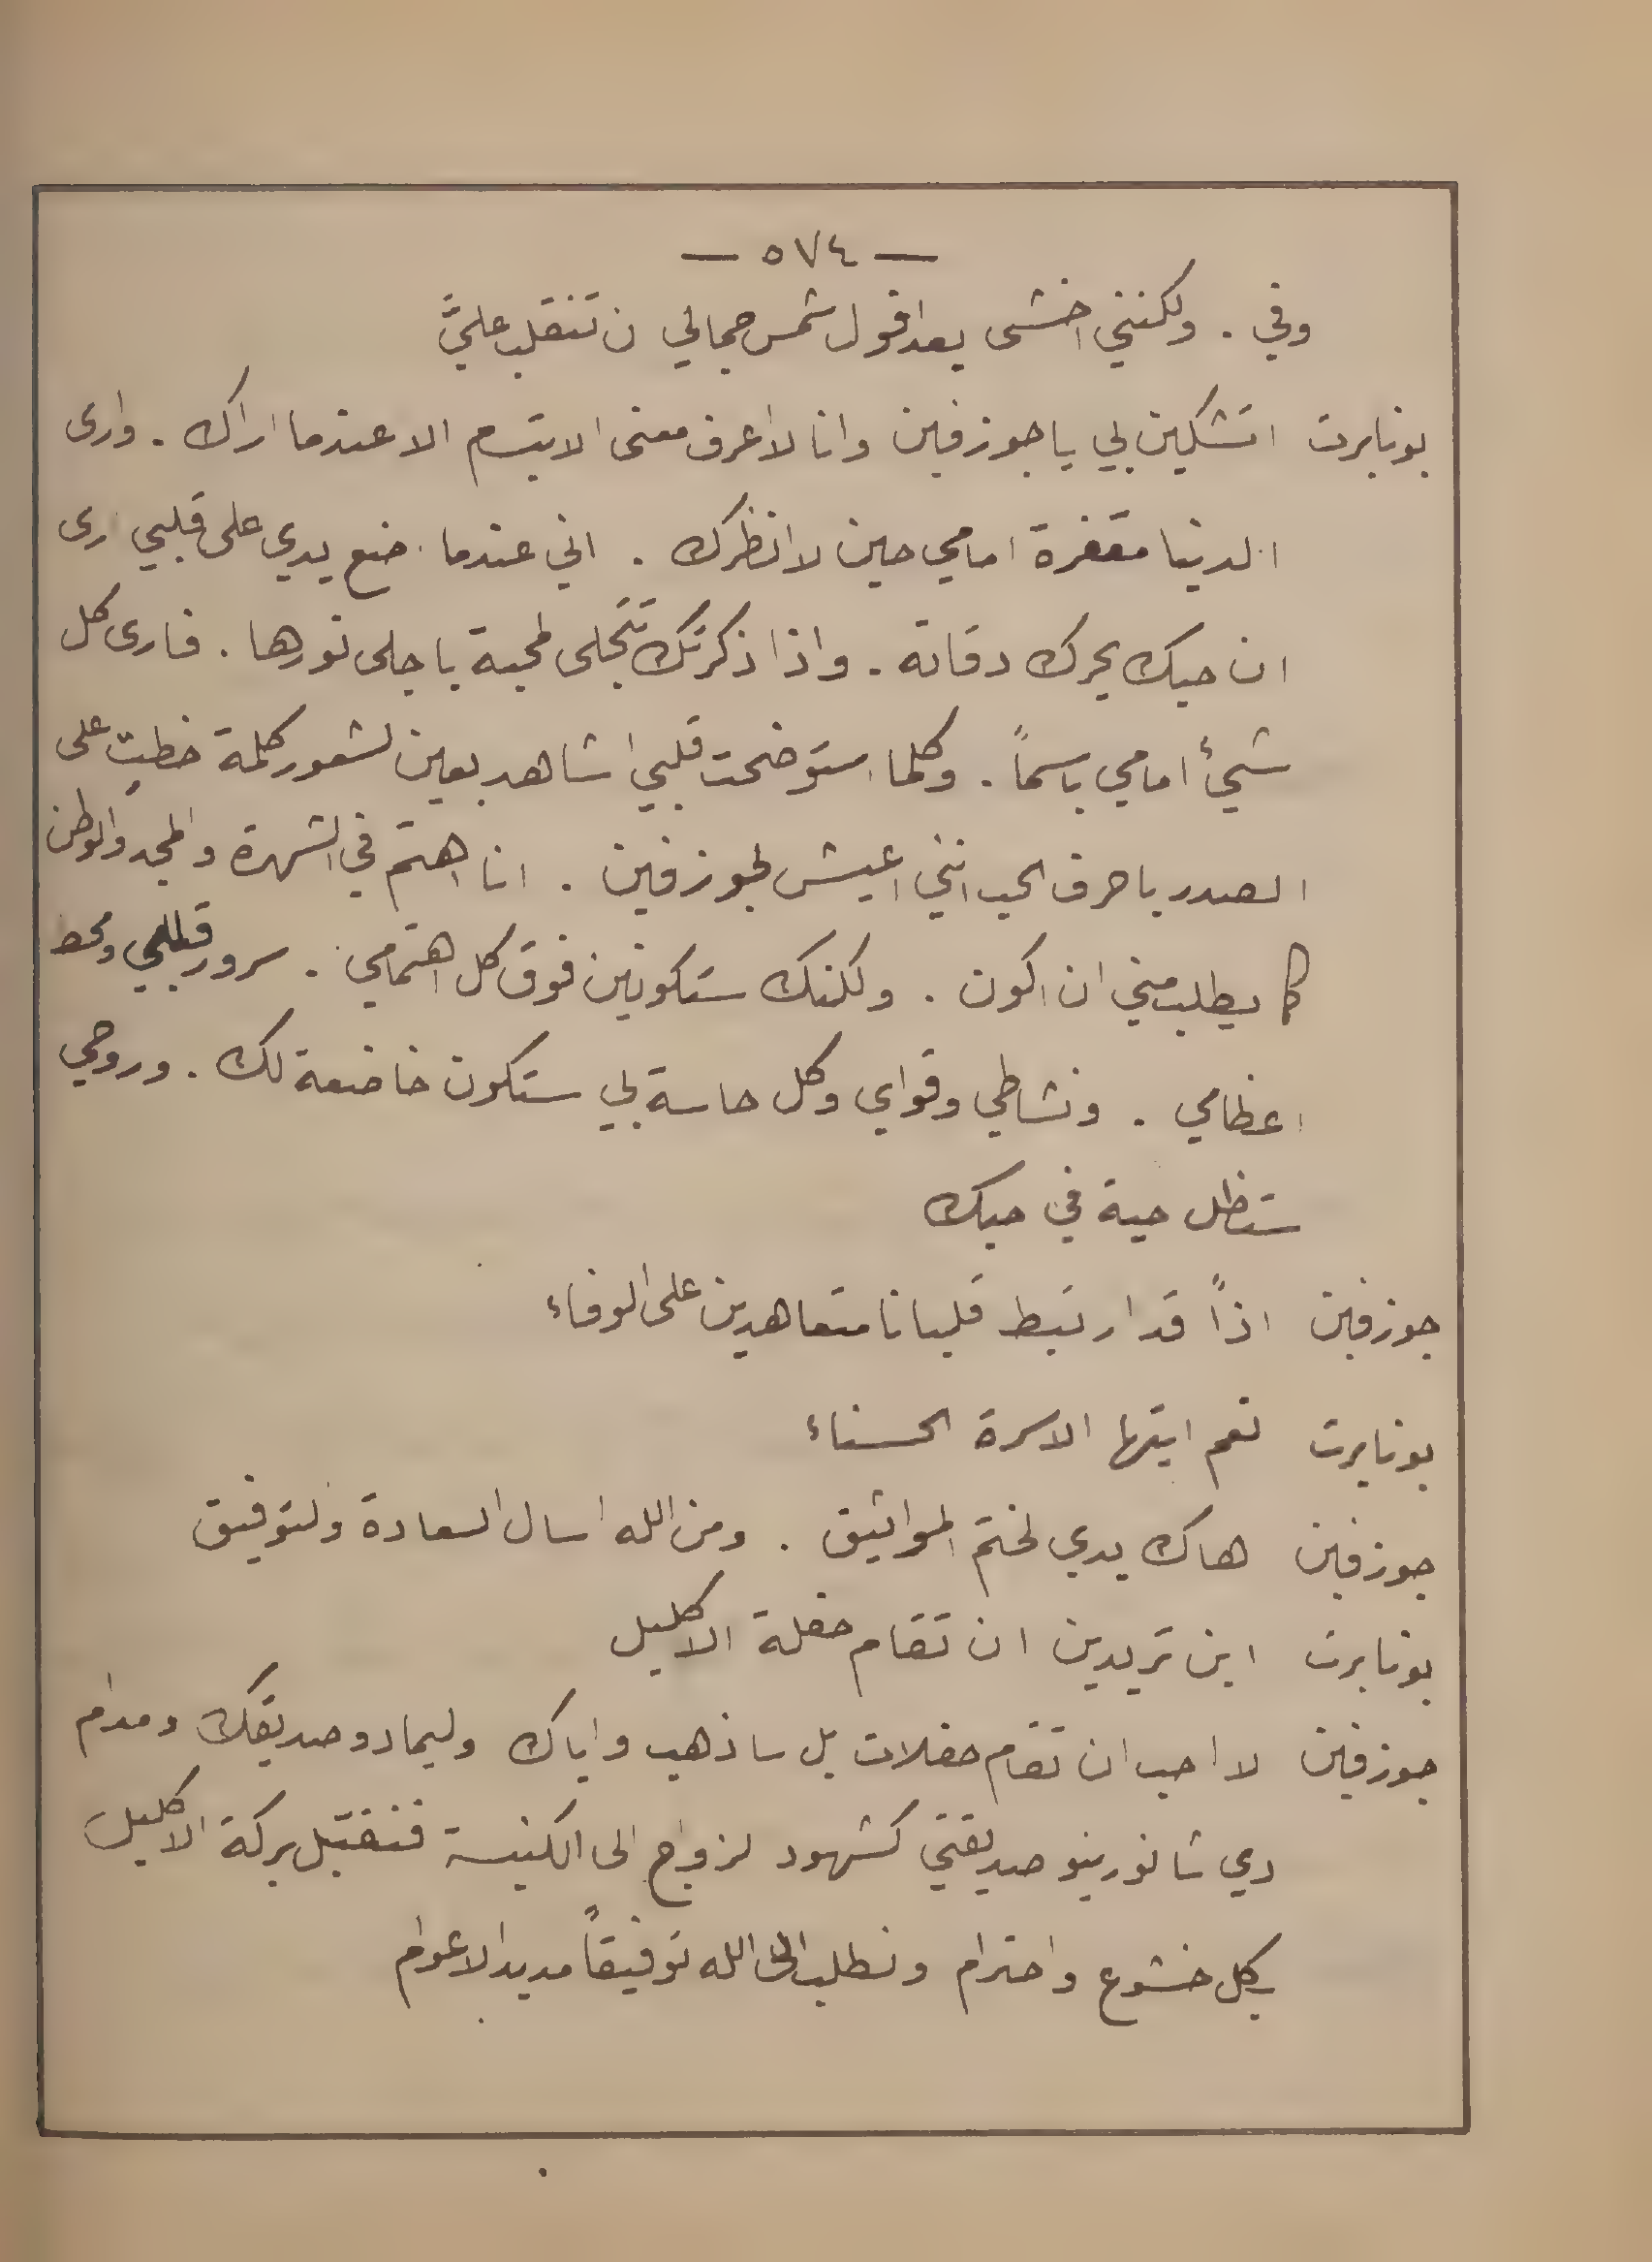 — ٥٧٤ —
وفي . ولكنني اخشى بعد افول شمس جمالي ان تنقلب عليَّ
بونابرت اتشكين بي يا جوزفين وانا لا اعرف معنى الابتسام الا عندما اراك . وارى
الدنيا مقفرة امامي حين لا انظرك . اني عندما اضع يدي على قلبي ارى
ان حبك يحرك دقاته . واذا ذكرتك تتجلى المحبة باجلى نورها . فارى كل
شيئ امامي باسماً . وكلما استوضحت قلبي اشاهد بعين الشعور كلمة خطت على
الصدر باحرف الحب انني اعيش لجوزفين . انا اهتم في الشهرة والمجد والوطن
كما يطلب مني ان اكون . ولكنك ستكونين فوق كل اهتمامي . سرور قلبي ومحط
اعظامي . ونشاطي وقواي وكل حاسة بي ستكون خاضعة لك . وروحي
ستظل حية في حبك
جوزفين اذاً قد ارتبط قلبانا متعاهدين على الوفاء
بونابرت نعم ايتها الاسرة الحسناء
جوزفين هاك يدي لختم المواثيق . ومن الله اسال السعادة والتوفيق
بونابرت اين تريدين ان تقام حفلة الاكليل
جوزفين لا احب ان تقام حفلات بل ساذهب واياك وليمادو صديقك ومدام
دي شانورينو صديقتي كشهود لزواج الى الكنيسة فنقتبل بركة الاكليل
بكل خشوع واحترام ونطلب الى الله توفيقاً مديد الاعوام